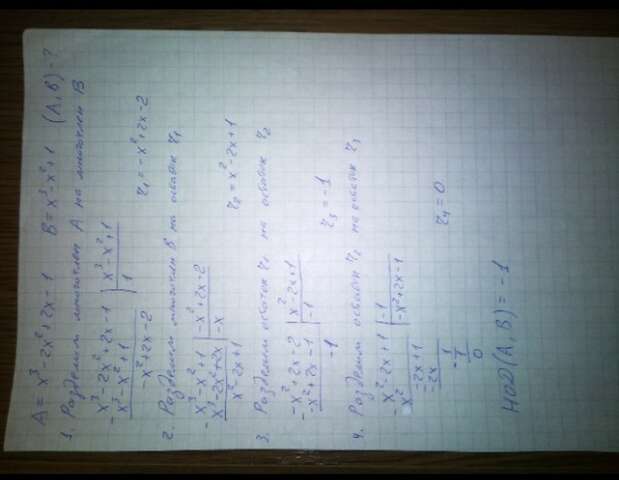 A = x³ - 2x² + 2x - 1 B = x³ - x² + 1 (A, B) - ?
1. Разделим многочлен A на многочлен B
- x³ - 2x² + 2x - 1 | x³ - x² + 1
x³ - x² + 1 | 1
- x² + 2x - 2 r₁ = - x² + 2x - 2
2. Разделим многочлен B на остаток r₁
- x³ - x² + 1 | - x² + 2x - 2
x³ - 2x² + 2x | - x
x² - 2x + 1 r₂ = x² - 2x + 1
3. Разделим остаток r₁ на остаток r₂
- - x² + 2x - 2 | x² - 2x + 1
- x² + 2x - 1 | - 1
- 1 r₃ = - 1
4. Разделим остаток r₂ на остаток r₃
- x² - 2x + 1 | - 1
x² | - x² + 2x - 1
- 2x + 1
- 2x
- 1
1
0 r₄ = 0
НОД (A, B) = - 1